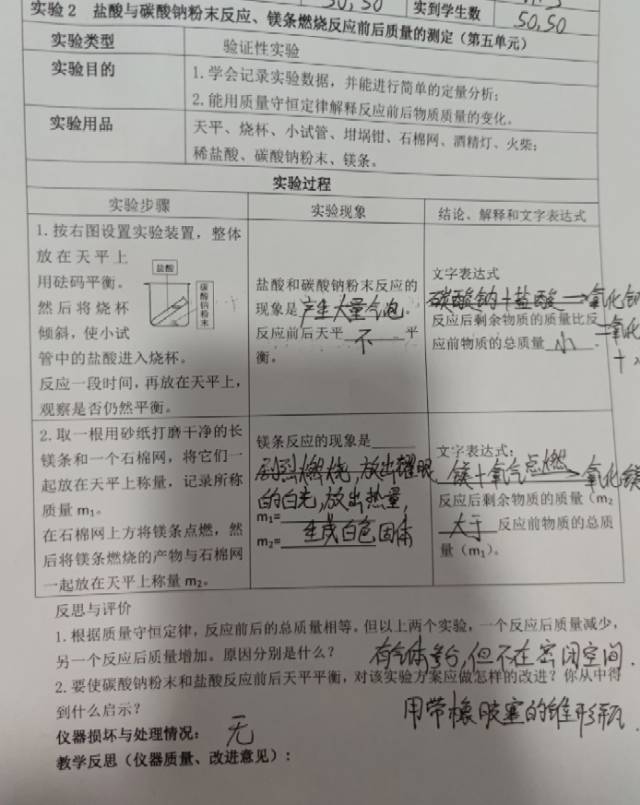 实验2 盐酸与碳酸钠粉末反应、镁条燃烧反应前后质量的测定（第五单元）
实到学生数 50,50
实验类型 验证性实验
实验目的 1.学会记录实验数据，并能进行简单的定量分析；
2.能用质量守恒定律解释反应前后物质质量的变化。
实验用品 天平、烧杯、小试管、坩埚钳、石棉网、酒精灯、火柴；
稀盐酸、碳酸钠粉末、镁条。
实验过程
实验步骤 实验现象 结论、解释和文字表达式
1.按右图设置实验装置，整体
放在天平上
用砝码平衡。
然后将烧杯
倾斜，使小试
管中的盐酸进入烧杯。
反应一段时间，再放在天平上，
观察是否仍然平衡。
盐酸
碳酸钠粉末
盐酸和碳酸钠粉末反应的
现象是产生大量气泡。
反应前后天平不平
衡。
文字表达式
碳酸钠+盐酸→氯化钠
反应后剩余物质的质量比反
应前物质的总质量小.
2.取一根用砂纸打磨干净的长
镁条和一个石棉网，将它们一
起放在天平上称量，记录所称
质量m₁。
在石棉网上方将镁条点燃，然
后将镁条燃烧的产物与石棉网
一起放在天平上称量m₂。
镁条反应的现象是
剧烈燃烧,放出耀眼
的白光,放出热量,
m₁=
m₂= 生成白色固体
文字表达式：
镁+氧气 点燃→氧化镁
反应后剩余物质的质量（m₂
大于反应前物质的总质
量（m₁）。
反思与评价
1.根据质量守恒定律，反应前后的总质量相等。但以上两个实验，一个反应后质量减少，
另一个反应后质量增加。原因分别是什么？ 有气体参与,但不在密闭空间.
2.要使碳酸钠粉末和盐酸反应前后天平平衡，对该实验方案应做怎样的改进？你从中得
到什么启示？ 用带橡胶塞的锥形瓶.
仪器损坏与处理情况： 无
教学反思（仪器质量、改进意见）：